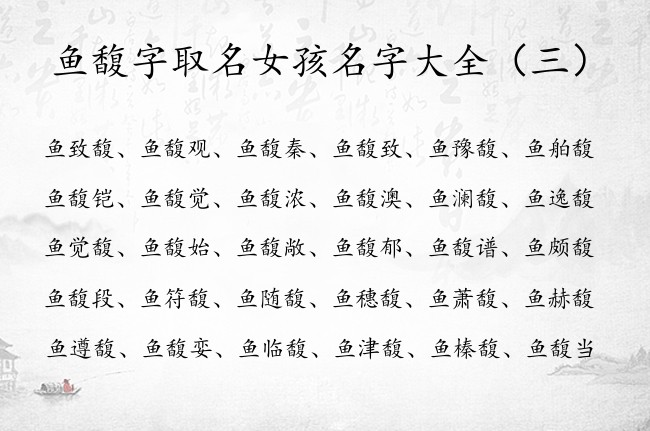 鱼馥字取名女孩名字大全（三）
鱼致馥、鱼馥观、鱼馥秦、鱼馥致、鱼豫馥、鱼舶馥
鱼馥铠、鱼馥觉、鱼馥浓、鱼馥澳、鱼澜馥、鱼逸馥
鱼觉馥、鱼馥始、鱼馥敞、鱼馥郁、鱼馥谱、鱼颇馥
鱼馥段、鱼符馥、鱼随馥、鱼穗馥、鱼萧馥、鱼赫馥
鱼遵馥、鱼馥娈、鱼临馥、鱼津馥、鱼榛馥、鱼馥当